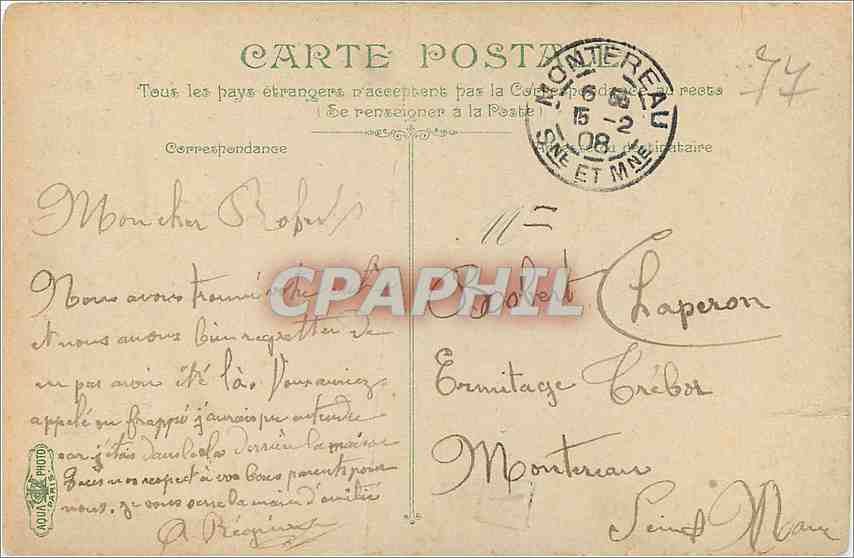 CARTE POSTALE
Tous les pays étrangers n'acceptent pas la Correspondance au recto
(Se renseigner à la Poste)
Correspondance
Adresse du destinataire
MONTEREAU
6
15 -2
08
SNE ET MNE
77
CPAPHIL
Mon cher Robert
Nous avons trouvé votre
et nous avons bien regretter de
pas avoir été là. Vous auriez
appelé ou frappé j'aurais pu entendre
car j'étais dans derrière la maison
nos respect à vos bons parents pour
nous. Je vous serre la main d'amitié
A.
Mr
Robert Chaperon
Ermitage Trébor
Montereau
Seine Marne
AQUA PHOTO
PARIS